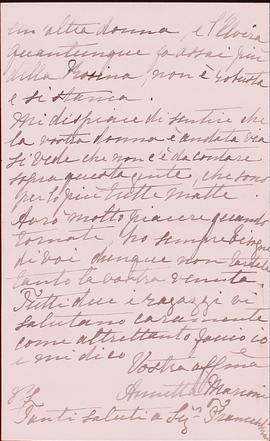 un'altra donna, e l'Elvira
quantunque fa assai più
della Rosina, non è robusta
e si stanca.
Mi dispiace di sentire che
la vostra donna è andata via
si vede che non c'è da contare
sopra questa gente, che sono
per lo più tutte matte.
Avrò molto piacere quando
tornate, ho sempre bisogno
di voi dunque non
tanto la vostra venuta.
Tutti due i ragazzi vi
salutano caramente
come altrettanto faccio io
e mi dico
Vostra affma
Annetta
Tanti saluti a Sigra